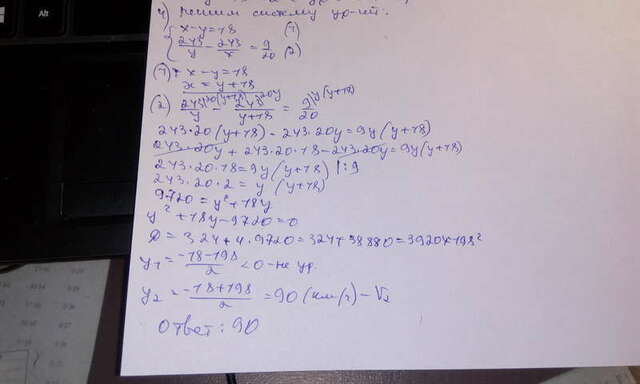 4) решим систему ур-ий.
x-y=18 (1)
243/y - 243/x = 9/20 (2)
(1): x-y=18
x=y+18
(2) 243^20(y+18)/y - 243^20y/y+18 = 9^y(y+18)/20
243·20(y+18)-243·20y=9y(y+18)
243·20y+243·20·18-243·20y=9y(y+18)
243·20·18=9y(y+18) |:9
243·20·2=y (y+18)
9720=y²+18y
y²+18y-9720=0
D=324+4·9720=324+38880=39204=198²
y₁=-18-198/2<0-не ур.
y₂=-18+198/2=90(км/г)-V₂
Ответ: 90
Alt